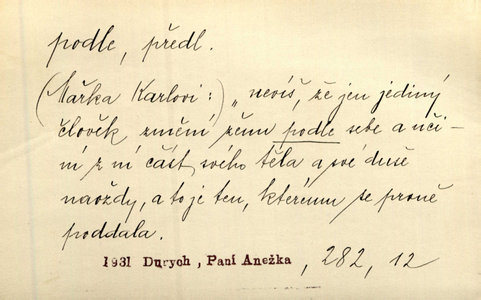 podle, předl.
(Mařka Karlovi:) „nevíš, že jen jediný
člověk změní ženu podle sebe a uči-
ní z ní část svého těla a své duše
navždy, a to je ten, kterému se prvně
poddala.
1931 Durych, Paní Anežka, 282, 12